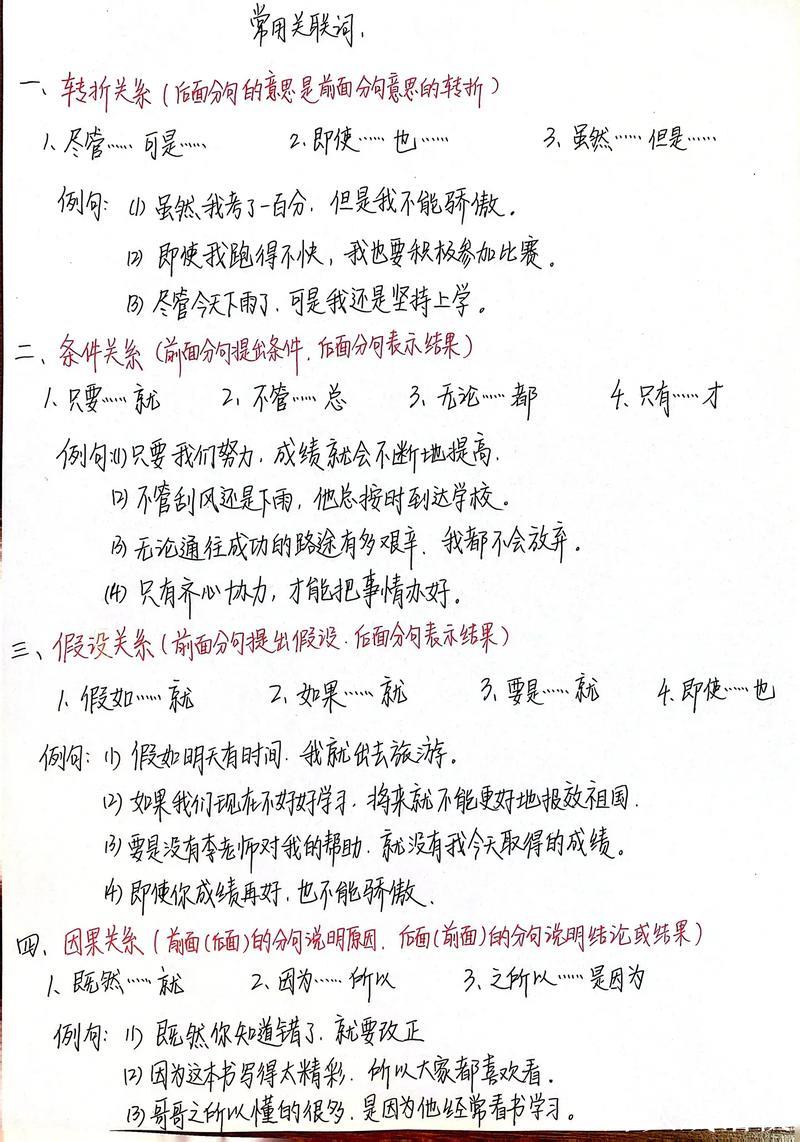 常用关联词.
一、转折关系（后面分句的意思是前面分句意思的转折）
1、尽管…… 可是…… 2、即使…… 也…… 3、虽然…… 但是……
例句: (1) 虽然我考了一百分，但是我不能骄傲。
(2) 即使我跑得不快，我也要积极参加比赛。
(3) 尽管今天下雨了，可是我还是坚持上学。
二、条件关系（前面分句提出条件，后面分句表示结果）
1、只要…… 就 2、不管…… 总 3、无论…… 都 4、只有…… 才
例句:(1)只要我们努力，成绩就会不断地提高.
(2) 不管刮风还是下雨，他总按时到达学校。
(3) 无论通往成功的路途有多艰辛，我都不会放弃。
(4) 只有齐心协力，才能把事情办好。
三、假设关系（前面分句提出假设，后面分句表示结果）
1、假如…… 就 2、如果…… 就 3、要是…… 就 4、即使……也
例句: (1) 假如明天有时间，我就出去旅游。
(2) 如果我们现在不好好学习，将来就不能更好地报效祖国.
(3) 要是没有李老师对我的帮助，就没有我今天取得的成绩。
(4) 即使你成绩再好，也不能骄傲.
四、因果关系（前面(后面)的分句说明原因，后面(前面)的分句说明结论或结果）
1、既然…… 就 2、因为…… 所以 3、之所以…… 是因为
例句: (1) 既然你知道错了，就要改正
(2) 因为这本书写得太精彩，所以大家都喜欢看.
(3) 哥哥之所以懂的很多，是因为他经常看书学习。